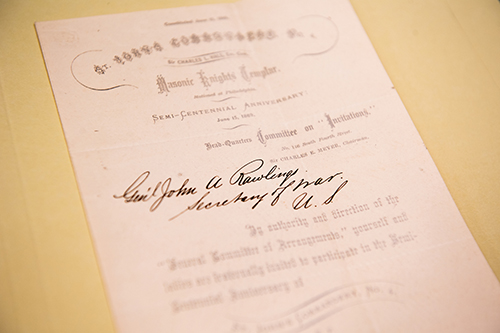 Constituted June 10, 1819.
St. John's Commandery No. 4
Sir CHARLES
Masonic Knights Templar,
Stationed at Philadelphia.
SEMI-CENTENNIAL ANNIVERSARY:
June 11, 1869.
Head-Quarters Committee on "Invitations,"
No. 128 South Fourth Street
Sir CHARLES E. MEYER, Chairman.
Genl John A Rawlings
Secretary of War.
U. S
In authority and direction of the
"General Committee of Arrangements," yourself and
are fraternally invited to participate in the Semi-
Centennial Anniversary of
St. John's Commandery, No. 4,